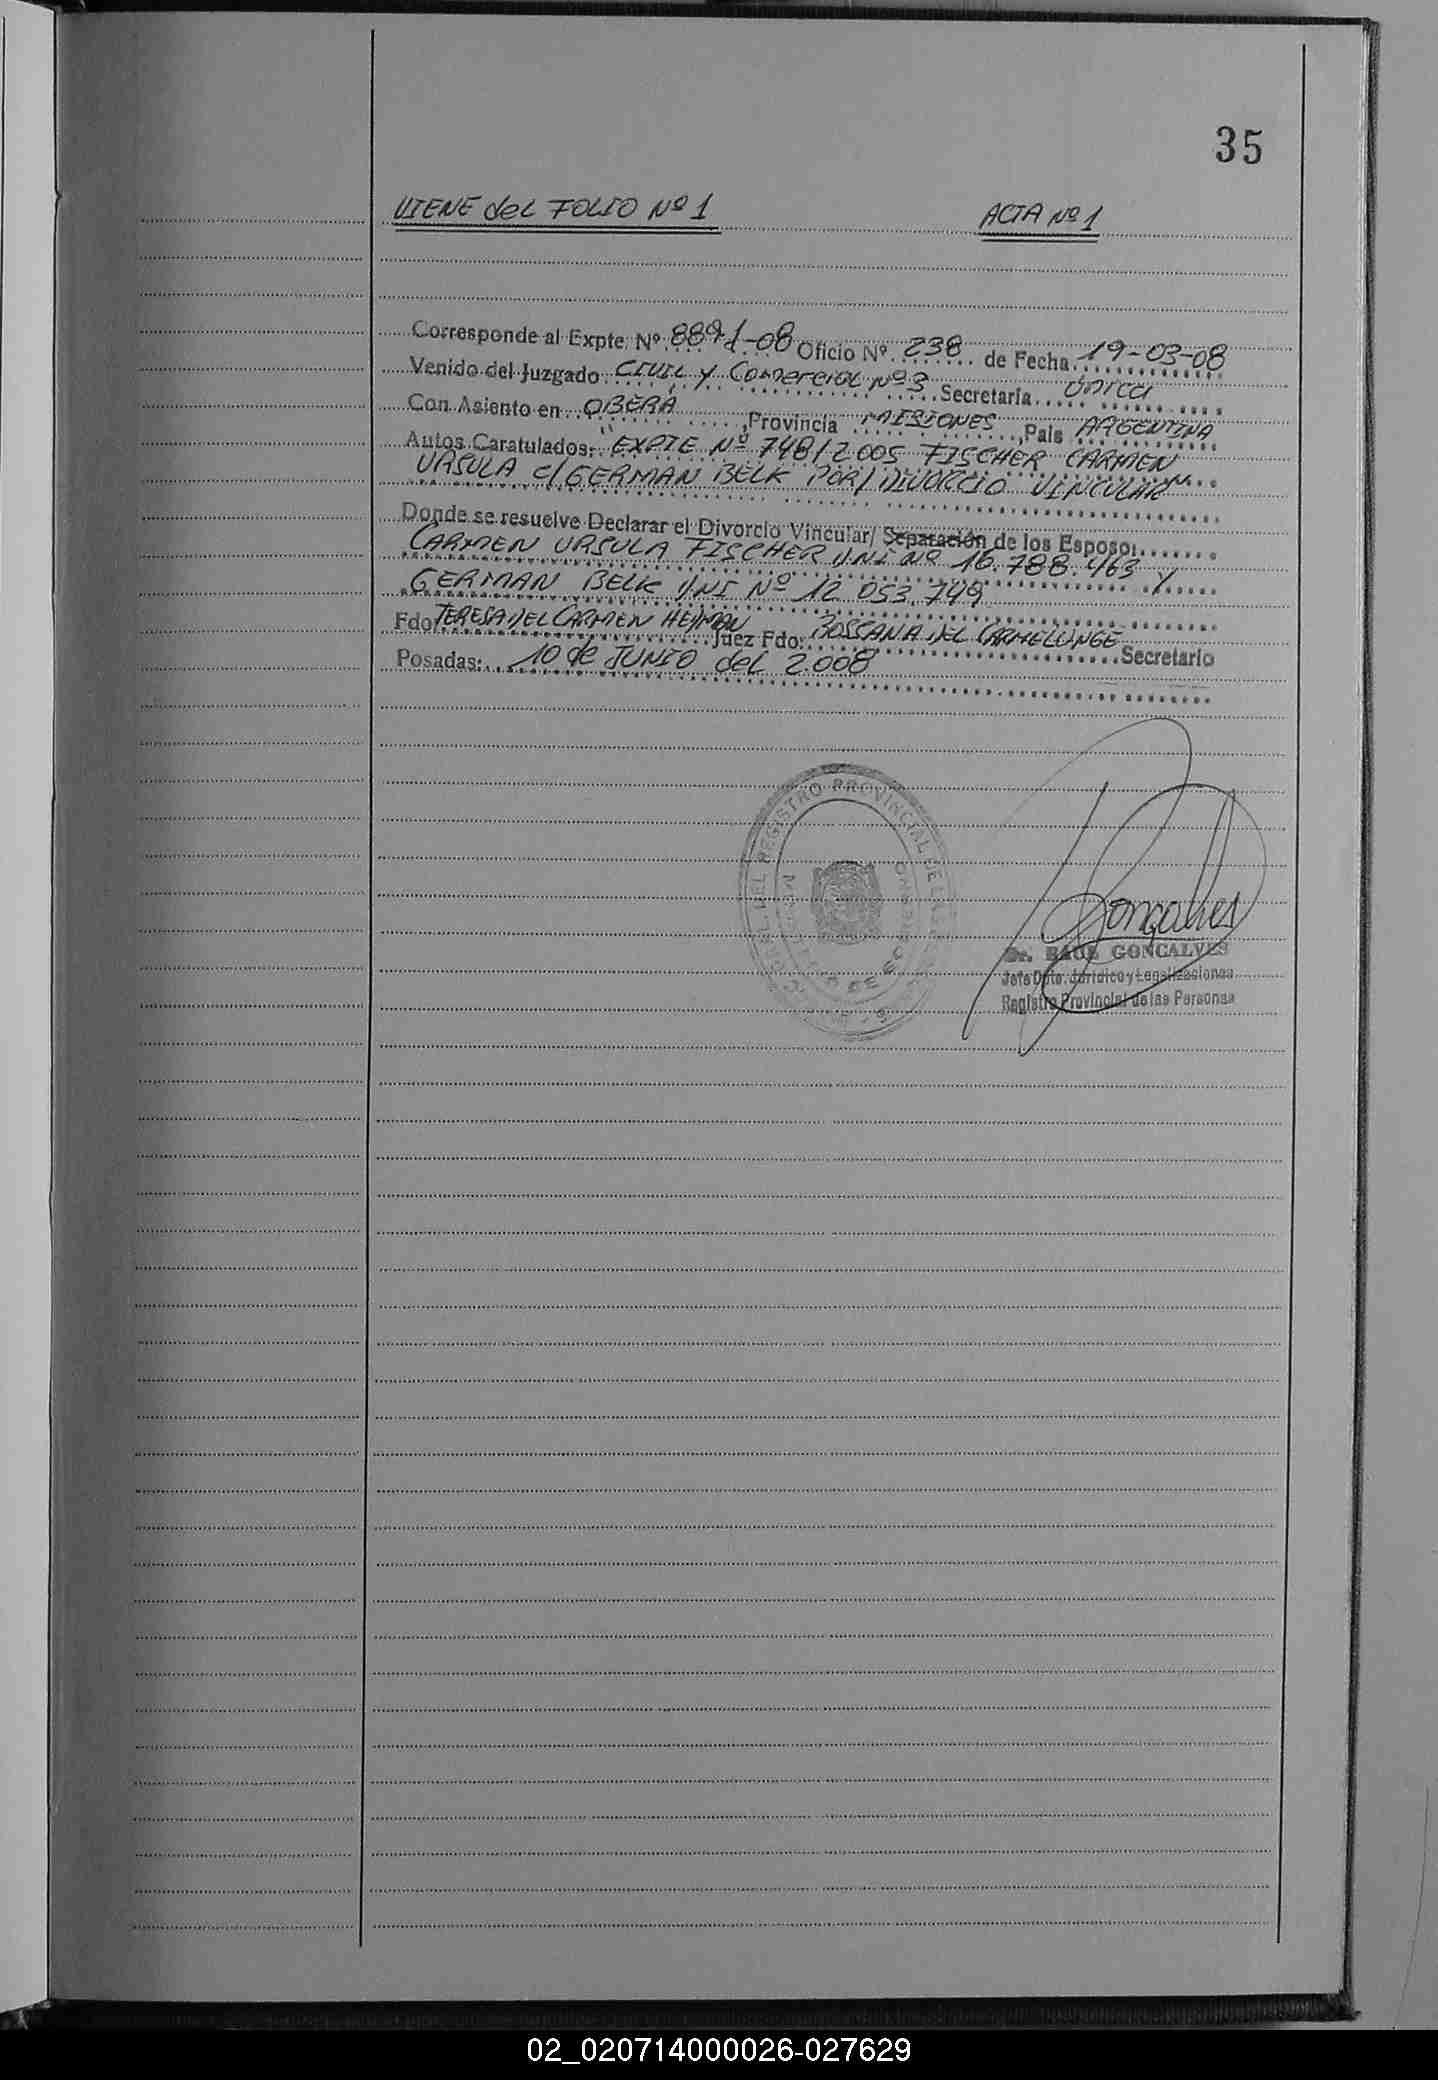 35
VIENE del FOLIO Nº 1 ACTA Nº 1
Corresponde al Expte. Nº 8891-08 Oficio Nº 238 de Fecha 19-03-08
Venido del Juzgado CIVIL y Comercial Nº 3 Secretaría única
Con Asiento en OBERA, Provincia MISIONES, País ARGENTINA
Autos Caratulados: "EXPTE Nº 748/2005 FISCHER CARMEN
URSULA c/ GERMAN BELK POR/ DIVORCIO VINCULAR"
Donde se resuelve Declarar el Divorcio Vincular/ Separación de los Esposo:
CARMEN URSULA FISCHER D.N.I Nº 16.788.463 Y
GERMAN BELK DNI Nº 12 053.749
Fdo: TERESA DEL CARMEN Juez Fdo: ROSSANA DEL Secretario
Posadas: 10 de JUNIO del 2.008
REGISTRO PROVINCIAL DE
Gonçalves
Dr. RAUL GONCALVES
Jefe Dpto. Jurídico y Legalizaciones
Registro Provincial de las Personas
02_020714000026-027629